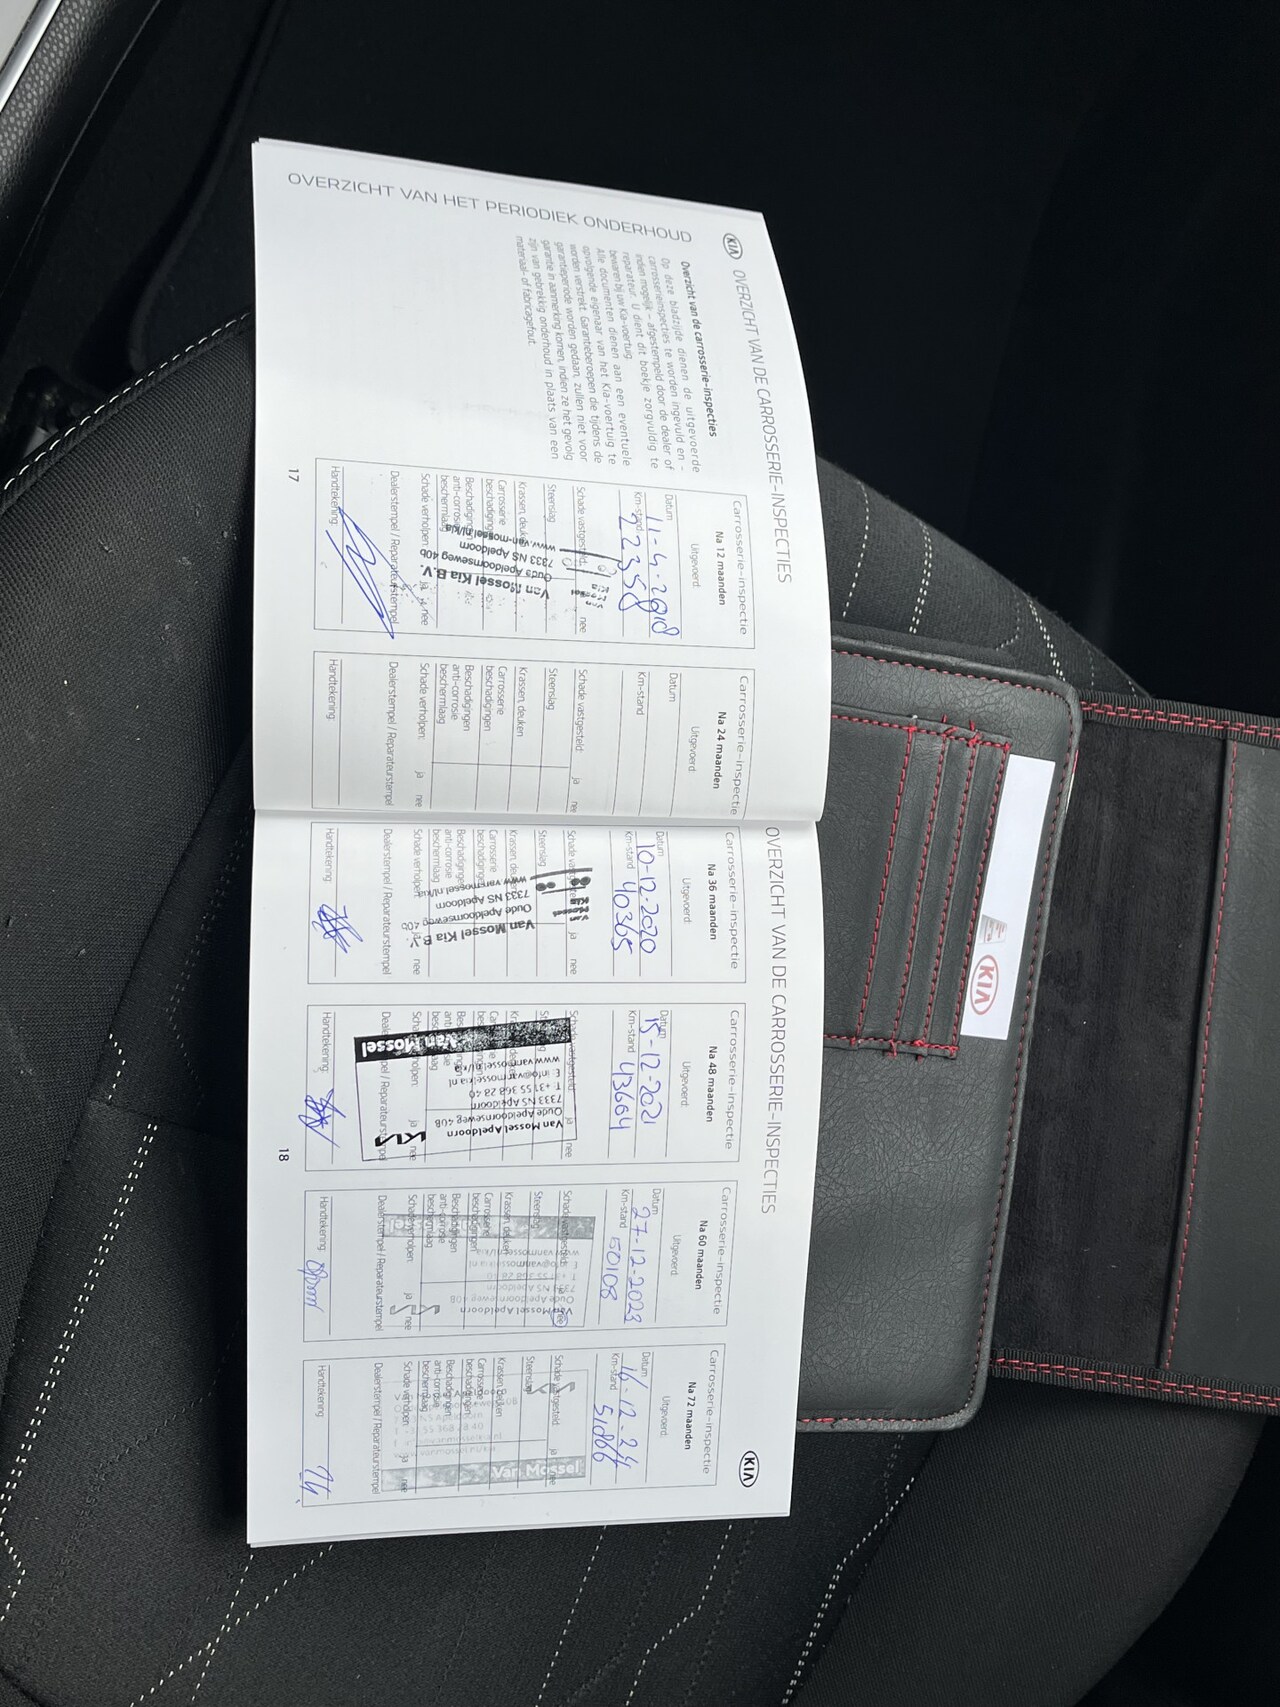 OVERZICHT VAN HET PERIODIEK ONDERHOUD
KIA OVERZICHT VAN DE CARROSSERIE-INSPECTIES
Overzicht van de carrosserie-inspecties
Op deze bladzijde dienen de uitgevoerde
carrosserieinspecties te worden ingevuld en -
indien mogelijk - afgestempeld door de dealer of
reparateur. U dient dit boekje zorgvuldig te
bewaren bij uw Kia-voertuig.
Alle documenten dienen aan een eventuele
opvolgende eigenaar van het Kia-voertuig te
worden verstrekt. Garantieberoepen die tijdens de
garantieperiode worden gedaan, zullen niet voor
garantie in aanmerking komen, indien ze het gevolg
zijn van gebrekkig onderhoud in plaats van een
materiaal- of fabricagefout.
Carrosserie-inspectie
Na 12 maanden
Uitgevoerd:
Datum 11-4-2018
Km-stand 22358
Schade vastgesteld: nee
Steenslag
Krassen, deuken
Carrosserie
beschadigingen
Beschadigingen
anti-corrosie
beschermlaag
Schade verholpen: ja nee
Dealerstempel / Reparateurstempel
Van Mossel Kia B.V.
Oude Apeldoornseweg 40b
7333 NS Apeldoorn
www.van-mossel.nl/kia
Handtekening:
Carrosserie-inspectie
Na 24 maanden
Uitgevoerd:
Datum
Km-stand
Schade vastgesteld: ja nee
Steenslag
Krassen, deuken
Carrosserie
beschadigingen
Beschadigingen
anti-corrosie
beschermlaag
Schade verholpen: ja nee
Dealerstempel / Reparateurstempel
Handtekening:
17
OVERZICHT VAN DE CARROSSERIE-INSPECTIES KIA
Carrosserie-inspectie
Na 36 maanden
Uitgevoerd:
Datum 10-12-2020
Km-stand 40365
ja nee
Steenslag
Carrosserie
beschadigingen
Beschadigingen
anti-corrosie
beschermlaag
Schade verholpen: ja nee
Dealerstempel / Reparateurstempel
Van Mossel Kia B
Oude Apeldoornseweg
7333 NS Apeldoorn
www.vanmossel.nl/kia
Handtekening:
Carrosserie-inspectie
Na 48 maanden
Uitgevoerd:
Datum 15-12-2021
Km-stand 43664
ja nee
ja nee
Van Mossel Apeldoorn
Oude Apeldoornseweg 40B
7333 NS Apeldoorn
T +31 55 368 28 40
E info@vanmosselkia.nl
www.vanmossel.nl/kia
Van Mossel
Handtekening:
Carrosserie-inspectie
Na 60 maanden
Uitgevoerd:
Datum 27-12-2023
Km-stand 50108
Schade vastgesteld: nee
Steenslag
Krassen, deuken
Carrosserie
beschadigingen
Beschadigingen
anti-corrosie
beschermlaag
Schade verholpen: ja nee
Dealerstempel / Reparateurstempel
Mossel Apeldoorn
Handtekening:
Carrosserie-inspectie
Na 72 maanden
Uitgevoerd:
Datum 16-12-24
Km-stand
Schade vastgesteld: ja nee
Steenslag
Krassen, deuken
Carrosserie
beschadigingen
Beschadigingen
anti-corrosie
beschermlaag
Schade verholpen: ja nee
Dealerstempel / Reparateurstempel
Van Mossel
Handtekening:
18
KIA